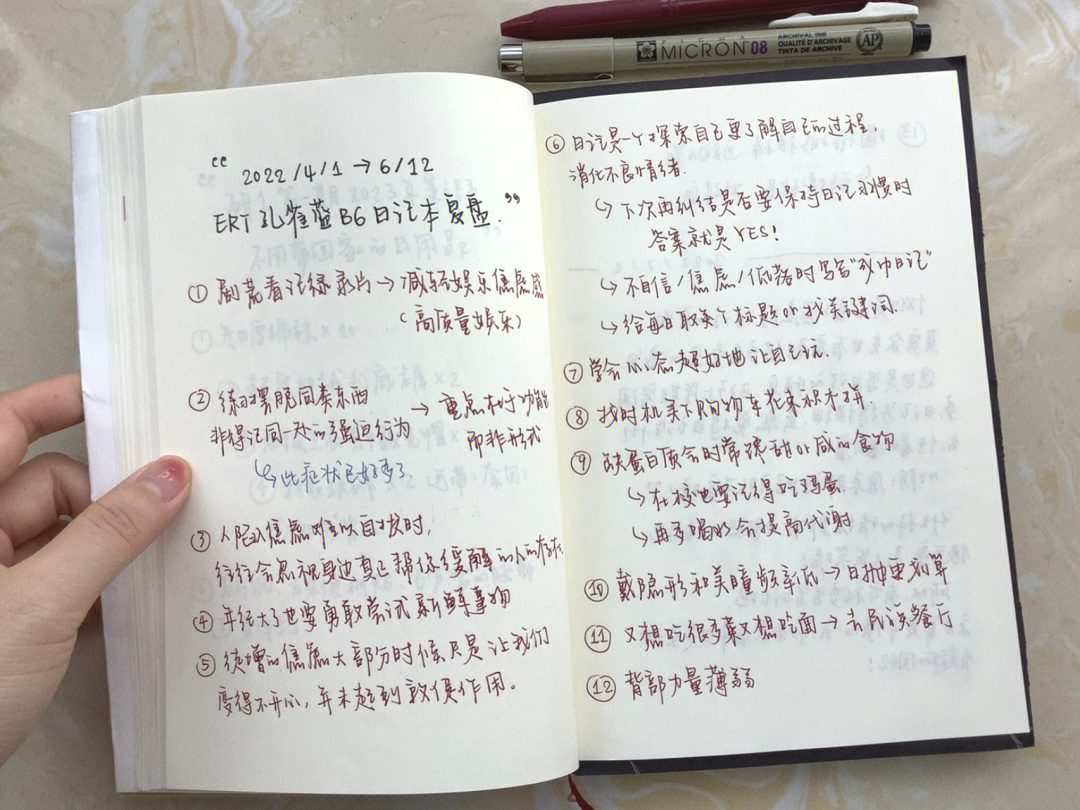 SIGMA
MICRON 08
ARCHIVAL INK
QUALITÉ D'ARCHIVAGE
TINTA DE ARCHIVO
AP
“ 2022/4/1 → 6/12
ERT 孔雀蓝 B6 日记本复盘 ”
① 剧荒看记录片 → 减轻娱乐焦虑感
(高质量娱乐)
② 练习摆脱同类东西
非得记同一处的强迫行为 → 重点在于功能
而非形式
↳ 此症状已好多了
③ 人陷入焦虑难以自拔时,
往往会忽视身边真正帮你缓解的人的存在.
④ 年纪大了也要勇敢尝试新鲜事物
⑤ 徒增的焦虑大部分时候只是让我们
变得不开心, 并未起到敦促作用。
⑥ 日记是一个探索自己更了解自己的过程,
消化不良情绪.
↳ 下次再纠结是否要保持日记习惯时
答案就是 YES!
↳ 不自信/焦虑/低落时写写“成功日记”
↳ 给每日取个标题 or 找关键词.
⑦ 学会心态超好地让自己玩.
⑧ 找时机买下购物车花束积木拼.
⑨ 缺蛋白质会时常馋甜 or 咸的食物
↳ 在校也要记得吃鸡蛋.
↳ 再多喝水会提高代谢
⑩ 戴隐形和美瞳频率低 → 日抛更划算
⑪ 又想吃很多菜又想吃面 → 去民族餐厅
⑫ 背部力量薄弱